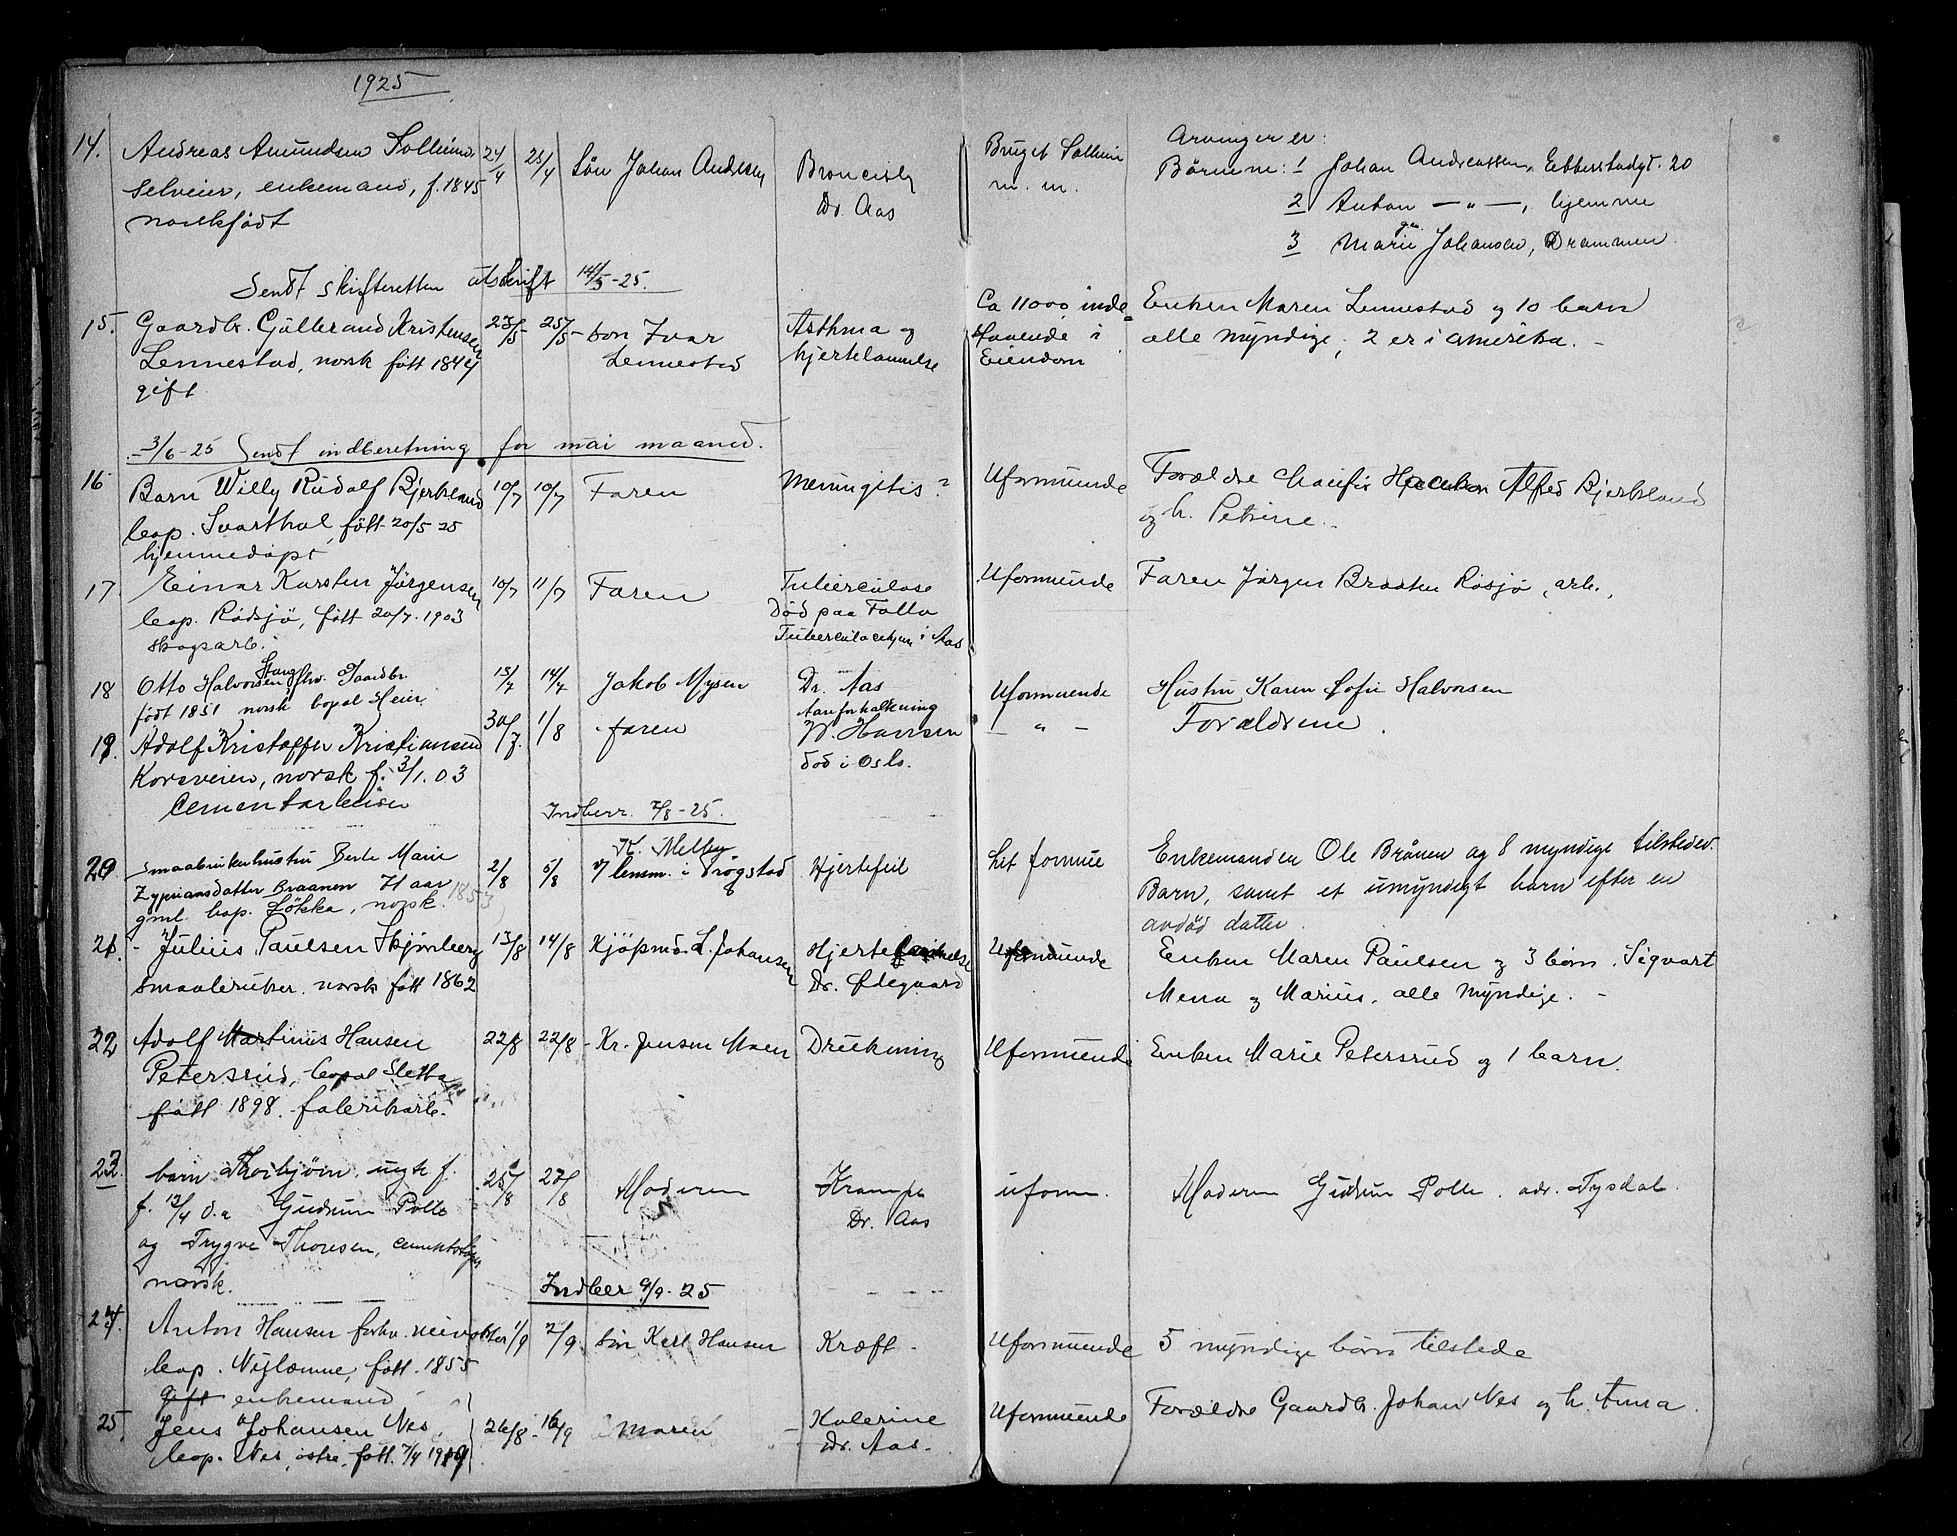 1925
14. Andreas Amundsen Solheim 24/4 25/4 Sön Johan Andersen Bronch Bruget Solheim Arvinger er:
selveier, enkemand, f. 1845 Dr. Aas m. m. Börnene: 1 Johan Andreassen, Ebbestadgt. 20
norskfödt 2 Anton — " —, hjemme
3 Marie Johansen, Drammen
Sendt skifteretten utskrift 14/5-25.
15. Gaardbr. Gullerand Kristensen 23/5- 25/5- Son Ivar Asthma og Ca 11000 inde Enken Maren Lennestad og 10 barn
Lennestad, norsk født 1844 Lennestad hjertelammelse staaende i alle myndige, 2 er i amerika. -
gift Eiendom
- 3/6-25 Sendt indberetning for mai maaned.
16 Barn Willy Rudolf Bjerkeland 10/7 10/7 Faren Meningitis? Uformuende Forældre Alfred Bjerkeland
bop. Svarthol, født 20/5 25 og h. Petrine.
hjemmedøpt
17 Einar Karsten Jørgensen 10/7 11/7 Faren Tuberculose Uformuende Faren Jørgen Braaten Rösjø, arb.,
bop. Rödsjö, født 20/7. 1903 Död paa Follo
skogsarb. Tuberculosehjem i Aas
18 Otto Halvorsen Haug fhv. Gaardbr. 13/7 14/7 Jakob Mysen Dr. Aas Uformuende Hustru Karen Sofie Halvorsen
født 1851 norsk bopæl Heier Aareforkalkning
19. Adolf Kristoffer Kristiansen 30/7. 1/8 faren Hansen - " - Forældrene.
Korsveien, norsk f. 3/1. 03 död i Oslo.
Cementarbeider
Indberr. 7/8-25.
20 Smaabrukerhustru Berte Marie 2/8 5/8 K. Melby Hjertefeil Lit formue Enkemanden Ole Brånen og 8 myndige tilstedev.
Zypriansdatter Braanen 71 aar v/ lensm. i Trögstad Barn, samt et umyndigt barn efter en
gml. bop. Løkka, norsk. 1853 avdød datter.
21. - Julius Paulsen Skjønberg 13/8 14/8 Kjöpmd. L. Johansen Hjerte Uformuende Enken Maren Paulsen og 3 børn. Sigvart
Smaabruker. norsk født 1862 Dr. Ødegaard Mena og Marius. alle myndige. -
22 Adolf Martinius Hansen 22/8 22/8 - Kr. Jensen Moen Drukning Uformuende Enken Marie Petersrud og 1 barn.
Petersrud, bopæl Sletta
født 1898. fabrikarb.
23 barn Thorbjørn, uegte f. 25/8 27/8 Moderen Krampe uform. Moderen Gudrun Polle. adr. Tysdal
f. 13/4 d.a Gudrun Polle Dr. Aas
og Trygve Thoresen,
norsk.
Indber 9/9-25
24. Anton Hansen forhv. 1/9 2/9 Sön Karl Hansen Kræft - Uformuende 5 myndige børn tilstede
bop. Nylænne, født. 1855
gift enkemand
25. Jens Johansen Nes 26/8 - 16/9 Moren Kolerine Uformuende Forældre Gaardbr. Johan Nes og h. Anna.
bop. Nes, østre, født. 7/4 1919 Dr. Aas.